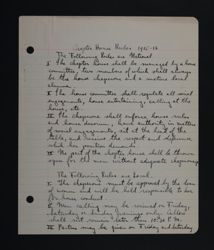 Chapter House Rules 1915-16
The Following Rules are National
I. The chapter house shall be managed by a house
committee, two members of which shall always
be the house chaperone and a resident local
alumna.
II. The house committee shall regulate all social
engagements, house entertaining, calling at the
house, etc.
III. The chaperone shall enforce house rules
and house decorum, have authority in matters
of social engagements, sit at the head of the
table, and receive the respect and deference
which her position demands.
IV. No part of the chapter house shall be thrown
open for the men without adequate chaperonage.
The Following Rules are Local.
I. The chaperone must be approved by the dean
of women and will be held responsible to her
for house conduct.
II. Men calling may be received on Friday,
Saturday or Sunday evenings only. Callers
shall not remain later than 10:30 P.M.
III. Parties may be given on Friday and Saturday